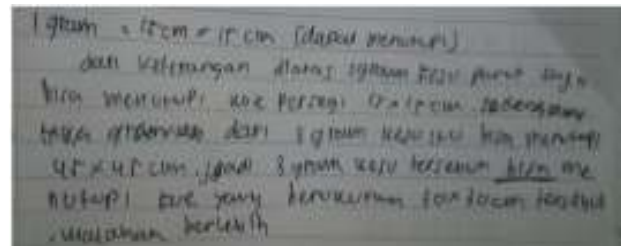 1 gram = 15 cm × 15 cm (dapat menutupi)
dari keterangan diatas 1 gram keju parut saja
bisa menutupi kue persegi 15 x 15 cm
dari 3 gram keju itu bisa menutupi
45 x 45 cm. jadi 3 gram keju tersebut bisa me
nutupi kue yang berukuran tersebut
malahan berlebih